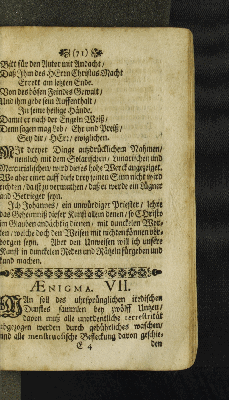 (71)
Bitt für den Autor mit Andacht /
Daß Ihm des HErrn Christus Macht
Errett am letzten Ende.
Von des bösen Feindes Gewalt /
Und ihm gebe sein Auffenthalt /
In seine heilige Hände.
Damit er nach der Engeln Weiß /
Denn sagen mag Lob / Ehr und Preiß /
Sey dir / HErr / ewiglichen.
Mit dreyer Dinge ausdrücklichen Nahmen /
nemlich mit dem Solarischen / Lunarischen und
Mercurialischen / wird dieses hohe Werck angezeiget.
Wo aber einer auff diese drey seinen Sinn nicht wird
richten / da ist zu vermuthen / daß er werde ein Lügner
und Betrieger seyn.
Ich Johannes / ein unwürdiger Priester / lehre
das Geheimnüß dieser Kunst allen denen / so Christo
im Glauben andächtig dienen / mit dunckelen Wor-
ten / welche doch den Weisen mit nichten können ver-
borgen seyn. Aber den Unweisen will ich unsere
Kunst in dunckelen Reden und Rätzeln fürgeben und
kund machen.
ÆNIGMA. VII.
MAn soll des uhrsprünglichen irrdischen
Dunstes sammlen bey zwölff Untzen /
davon muß alle unordentliche terrestrität
abgezogen werden durch gebührliches waschen /
und alle menstrualische Befleckung davon geschie-
E 4
den